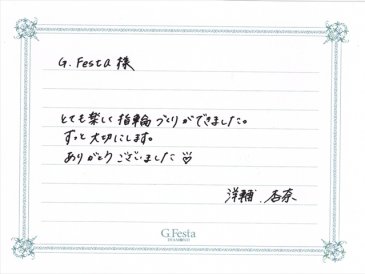 G.Festa 様
とても楽しく指輪づくりができました。
ずっと大切にします。
ありがとうございました♡
洋輔 . 杏奈
G.Festa
DIAMOND